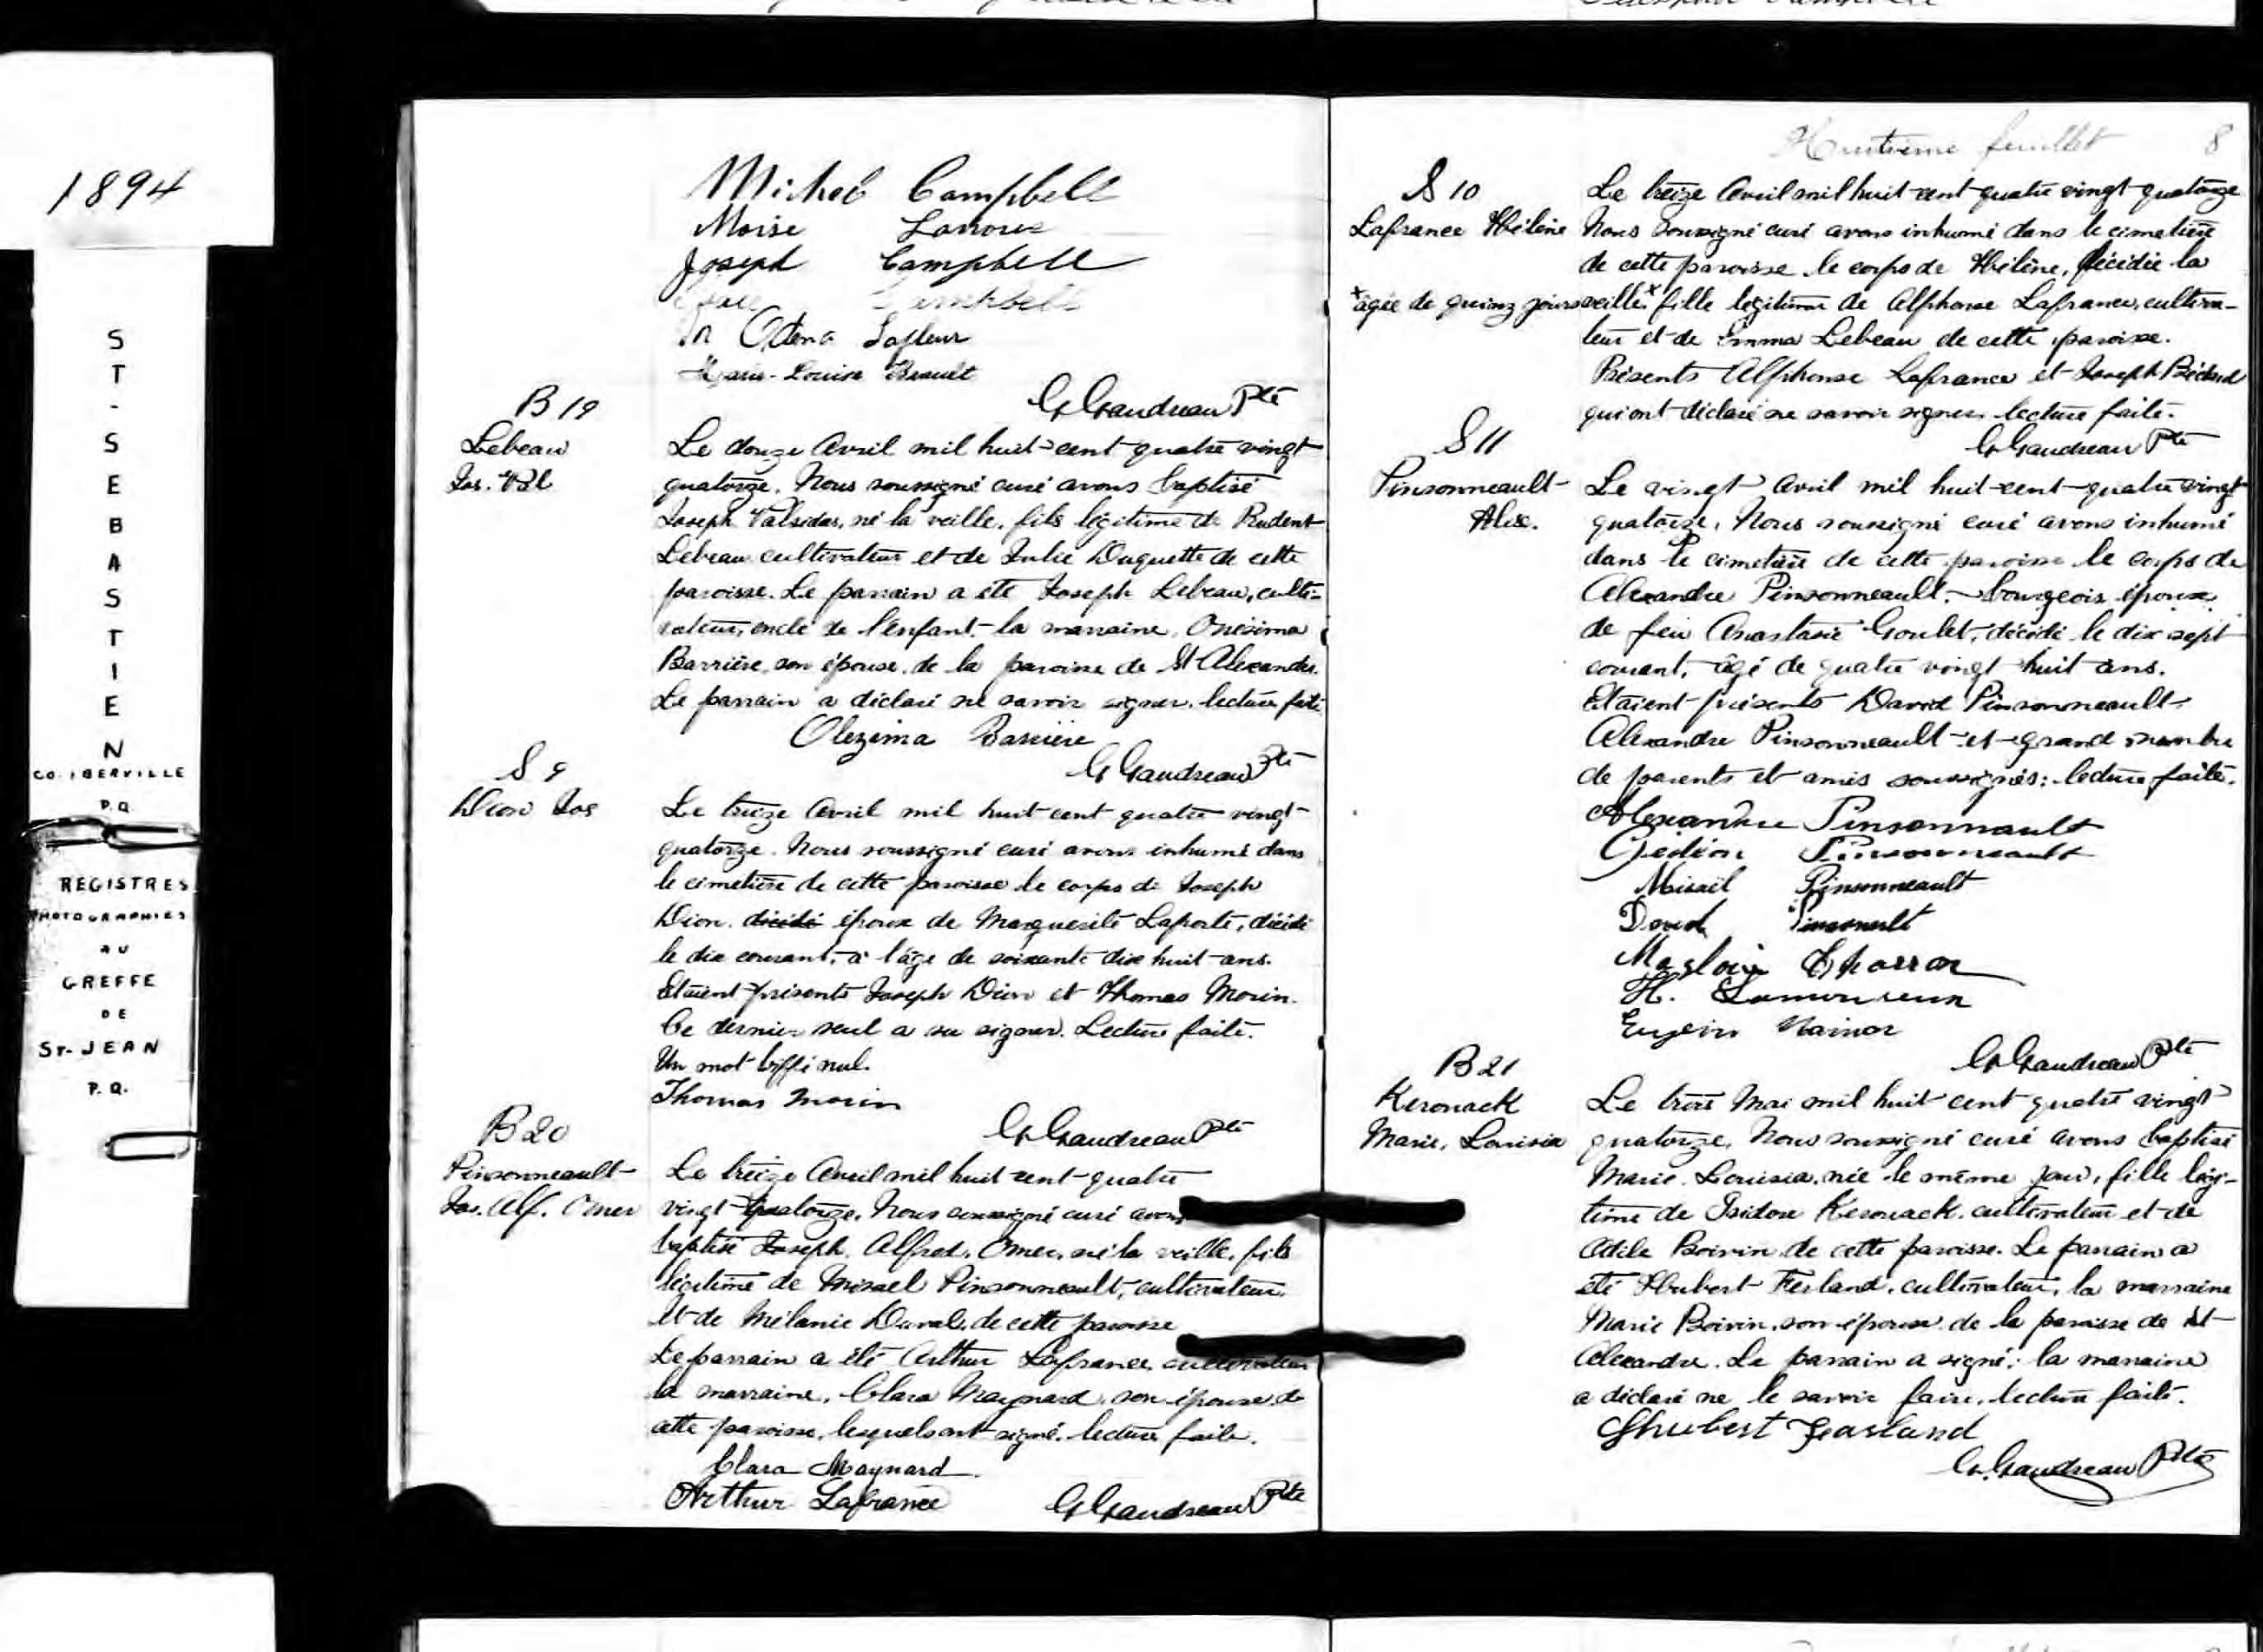 1894
ST-SEBASTIEN
CO. IBERVILLE
P.Q.
REGISTRES
PHOTOGRAPHIES
AU
GREFFE
DE
ST-JEAN
P.Q.
Michel Campbell
Moise
Joseph Campbell
Campbell
Lafleur
Marie-Louise
G Gaudreau Ptre
B 19
Lebeau
Jos. Val
Le douze Avril mil huit-cent quatre vingt
quatorze. Nous soussigné curé avons baptisé
Joseph Valsidas, né la veille, fils légitime de Prudent
Lebeau cultivateur et de Julie Duquette de cette
paroisse. Le parrain a été Joseph Lebeau, culti-
vateur, oncle de l'enfant, la marraine, Onésima
Barrière, son épouse, de la paroisse de St Alexandre.
Le parrain a déclaré ne savoir signer. lecture faite
Olezima Barriere
G Gaudreau Ptre
S 9
Dion Jos
Le treize Avril mil huit cent quatre vingt-
quatorze. Nous soussigné curé avons inhumé dans
le cimetière de cette paroisse le corps de Joseph
Dion. décédé époux de Marguerite Laporte, décédé
le dix courant, à l'âge de soixante dix huit ans.
Etaient présents Joseph Dion et Thomas Morin.
Ce dernier seul a su signer. Lecture faite.
Un mot biffé nul.
Thomas Morin
G Gaudreau Ptre
B 20
Pinsonneault
Jos. Alf. Omer
Le treize Avril mil huit cent-quatre
vingt quatorze. Nous soussigné curé avons
baptisé Joseph, Alfred, Omer, né la veille, fils
légitime de Misael Pinsonneault, cultivateur
et de Mélanie Duval, de cette paroisse
Le parrain a été Arthur Lafrance cultivateur
la marraine, Clara Maynard, son épouse, de
cette paroisse, lesquels ont signé. lecture faite.
Clara Maynard
Arthur Lafrance
G Gaudreau Ptre
Huitième feuillet 8
S 10
Lafrance Hélène
Le treize Avril mil huit cent quatre vingt quatorze
Nous soussigné curé avons inhumé dans le cimetière
de cette paroisse le corps de Hélène, décédée la
x âgée de quinz jours
veille,x fille légitime de Alphonse Lafrance, cultiva-
teur et de Emma Lebeau de cette paroisse.
Présents Alphonse Lafrance et Joseph Béchard
qui ont déclaré ne savoir signer. lecture faite.
G Gaudreau Ptre
S 11
Pinsonneault
Alex.
Le vingt Avril mil huit-cent-quatre vingt
quatorze, Nous soussigné curé avons inhumé
dans le cimetière de cette paroisse le corps de
Alexandre Pinsonneault, bourgeois époux
de feu Anastasie Goulet, décédé le dix sept
courant, âgé de quatre vingt huit ans.
Etaient présents David Pinsonneault
Alexandre Pinsonneault et grand nombre
de parents et amis soussignés: lecture faite.
Alexandre Pinsonnault
Gédéon Pinsonneault
Misaël Pinsonneault
David Pinsonault
H. Lamoureux
G Gaudreau Ptre
B 21
Kerouack
Marie. Louisia
Le trois Mai mil huit cent quatre vingt
quatorze, Nous soussigné curé avons baptisé
Marie. Louisia, née le même jour, fille légi-
time de Isidore Kerouack, cultivateur et de
Odile Boivin de cette paroisse. Le parrain a
été Hubert Ferland, cultivateur, la marraine
Marie Boivin, son épouse, de la paroisse de St-
Alexandre. Le parrain a signé; la marraine
a déclaré ne le savoir faire. lecture faite.
Hubert Fearland
G. Gaudreau Ptre